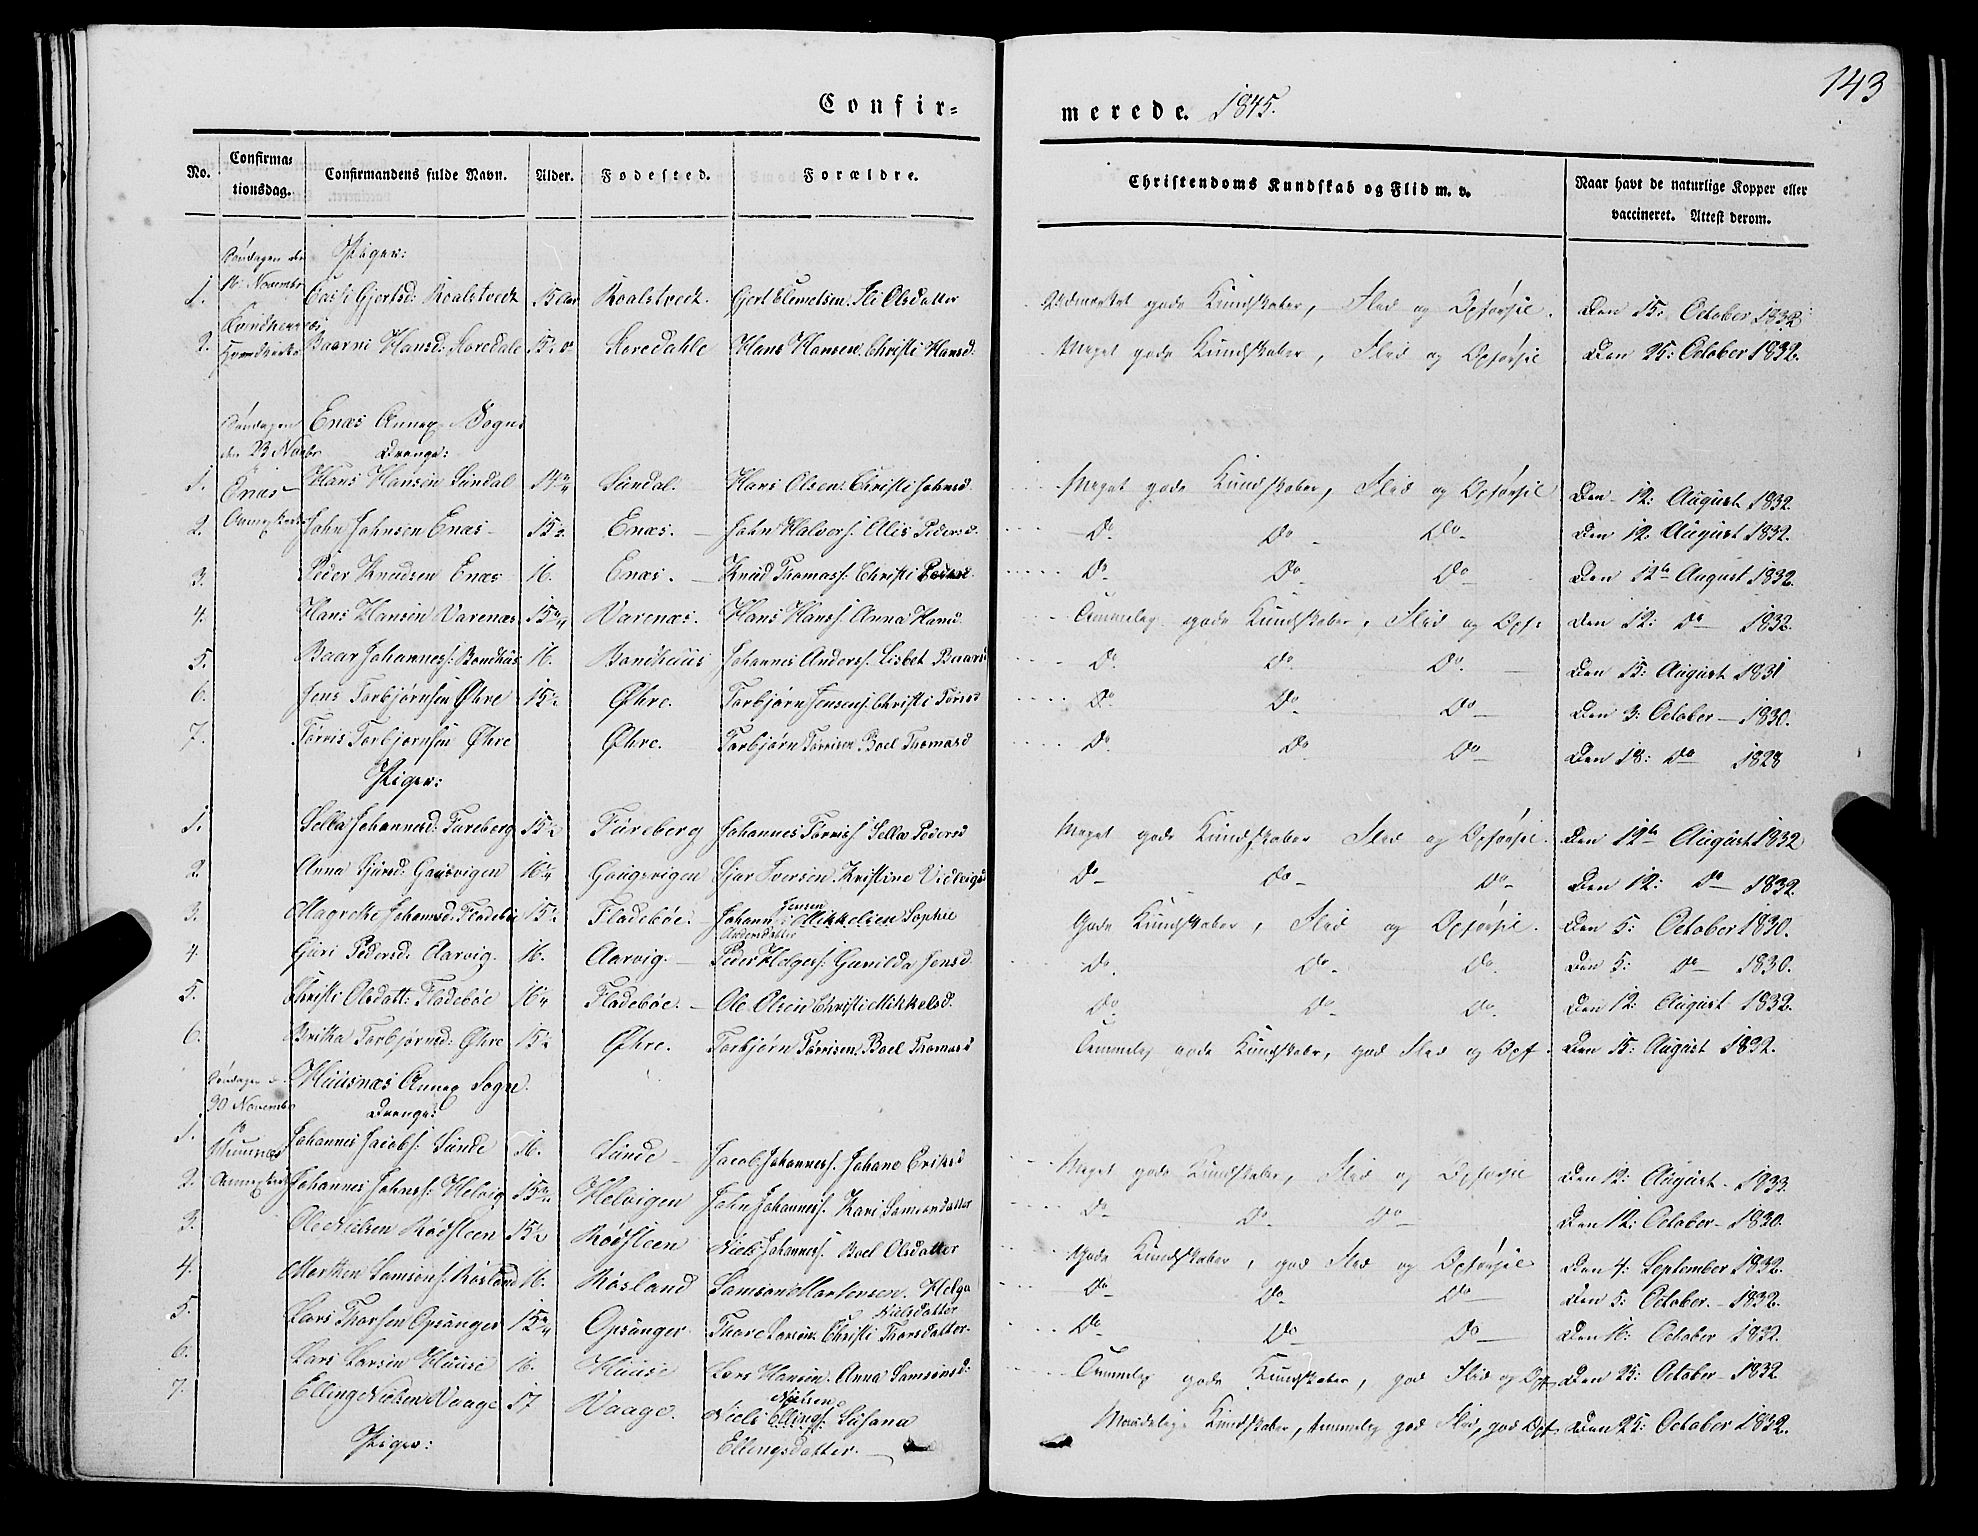 143
Confir-
merede. 1845.
No. Confirma-tionsdag. Confirmandens fulde Navn. Alder. Fødested. Forældre. Christendoms Kundskab og Flid m. v. Naar havt de naturlige Kopper eller vaccineret. Attest derom.
Søndagen den 16 Novembr Piger:
1. Gjertsd: Roalstvedt 15 Aar Roalstvedt. Gjert Clemetsen. Ili Olsdatter Udmerket gode Kundskaber, Flid og Opførsel. Den 15: October 1832
2. Baarni Hansd: Storedale 15 Storedahle Hans Hansen. Christi Hansd: Meget gode Kundskaber, Flid og Opførsel Den 25: October 1832.
Søndagen den 23 Novbr Enæs Annex Sogn
Drenge:
1. Hans Hansen Sundal 14 Sundal. Hans Olsen: Christi Johnsd. Meget gode Kundskaber, Flid og Opførsel Den 12: August 1832.
2. John Johnsen Enæs 15 Enæs. John Halvors: Ollis Pedersd. Do Do Do Den 12. August 1832.
3. Peder Knudsen Enæs 16. Enæs. Knud Thomass: Christi Do Do Do Den 12te August 1832.
4. Hans Hansen Varenæs 15 Varenæs. Hans Hanss: Anna Hansd. Temmelig gode Kundskaber, Flid og Opf: Den 12: Do 1832.
5. Baar Johanness: Bondhuus 16. Bondhuus Johannes Anderss: Lisbet Baarsd Do Do Do Den 15: August 1831
6. Jens Torbjørnsen Øhre 15 Øhre. Torbjørn Jensen: Christi Do Do Do Den 3: October 1830.
7. Tørris Torbjørnsen Øhre Øhre. Torbjørn Tørrisen Boel Thomasd Do Do Do Den 18: Do 1828
Piger:
1. Sella Johannesd: Fureberg 15 Fureberg Johannes Tørriss: Sella Pedersd Meget gode Kundskaber Flid og Opførsel. Den 12te August 1832
2 Anna Sjursd: Gausvigen 16 Gaugsvigen Sjur Iversen. Kristine Do Do Do Den 12: Do 1832.
3. Magrethe Johannsd: Fladebøe 15 Fladebøe. Johann Jensen Mikkelsen Sophie Andersdatter Gode Kundskaber, Flid og Opførsel. Den 5: October 1830.
4. Guri Pedersd: Aarvig. 16. Aarvig. Peder Helges: Gunilda Jensd. Do. Do. Do. Den 5: Do 1830.
5. Christi Olsdatt: Fladebøe 16 Fladebøe. Ole Olsen Christi Mikkelsd. Do. Do. Do. Den 12: August 1832.
6. Britha Torbjørnsd: Øhre 15 Øhre. Torbjørn Tørrisen. Boel Thomasd Temmelig gode Kundskaber, god Flid og Opf. Den 15: August 1832.
Søndagen d. 30 Novembr Huusnæs Annex Sogn.
Drenge:
1. Johannes Jacobs: Sunde 16. Sunde Jacob Johanness. Johane Eriksd Meget gode Kundskaber, Flid og Opførsel Den 12: August. 1933
2. Johannes Johns: Helvig 15 Helvigen John Johanness. Kari Samsondatter Do Do Do Den 12: October 1830.
3. Ole Nielsen Rødsteen 15 Rødsteen Niels Johanness: Boel Olsdatter Gode Kundskaber, god Flid og Opførsel Den 4: September 1832.
4. Morthen Samsons: Røsland 16. Røsland Samson Mortensen. Helga Nielsdatter Do Do Do Den 5: October. 1832.
5. Lars Thorsen Opsanger 15 Opsanger Thore Larsen Christi Thorsdatter Do. Do Do Den 11: October 1832.
6. Lars Larsen Huuse 16. Huuse Lars Hansen. Anna Samsonsd: Temmelig gode Kundskaber, god Flid og Opf. Den 25: October 1832
7. Elling Nielsen Vaage 17 Vaage. Niels Ellings: Nielsen Susana Ellingsdatter. Maadelige Kundskaber, temmelig god Flid, god Opf Den 25: October 1832.
Piger: